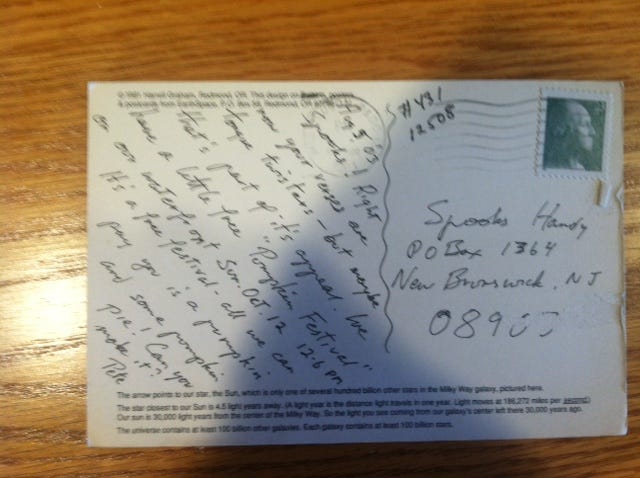 © 1981 Harrell Graham, Redmond, OR. This design on posters
& postcards from EarthSpace, P.O. Box Redmond, OR
5 '03
Spooks! Right
now your verses are
tongue twisters - but maybe
that's part of it's appeal. We
have a little free "Pumpkin Festival"
on our waterfront Sun. Oct. 12 12-6 pm
It's a free festival - all we can
pay you is a pumpkin
and some pumpkin
pie! Can you
make it?
Pete
#431
12508
Spooks Handy
PO Box 1364
New Brunswick, NJ
089
The arrow points to our star, the Sun, which is only one of several hundred billion other stars in the Milky Way galaxy, pictured here.
The star closest to our Sun is 4.5 light years away. (A light year is the distance light travels in one year. Light moves at 186,272 miles per second)
Our sun is 30,000 light years from the center of the Milky Way. So the light you see coming from our galaxy's center left there 30,000 years ago.
The universe contains at least 100 billion other galaxies. Each galaxy contains at least 100 billion stars.